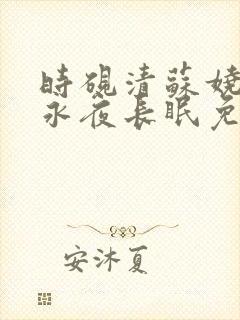 時硯清蘇嬈
永夜長眠免
安沐夏